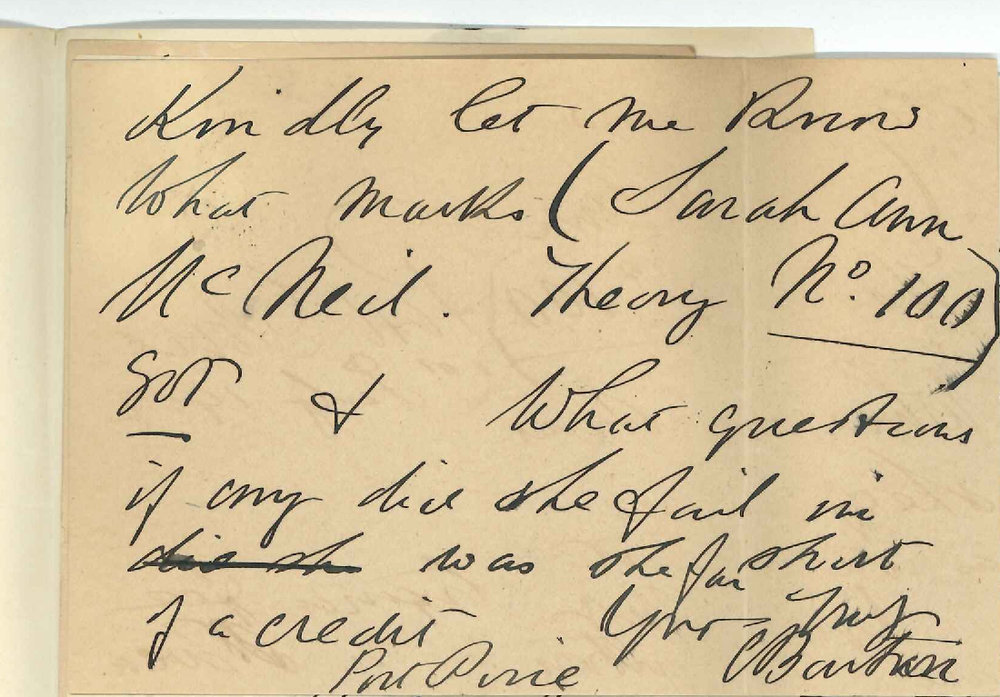 Kindly let me know
What marks (Sarah Ann
McNeil. Theory No. 100)
got & What questions
if any did she fail in
did she was she far short
of a credit Yrs Truly
Port Pirie